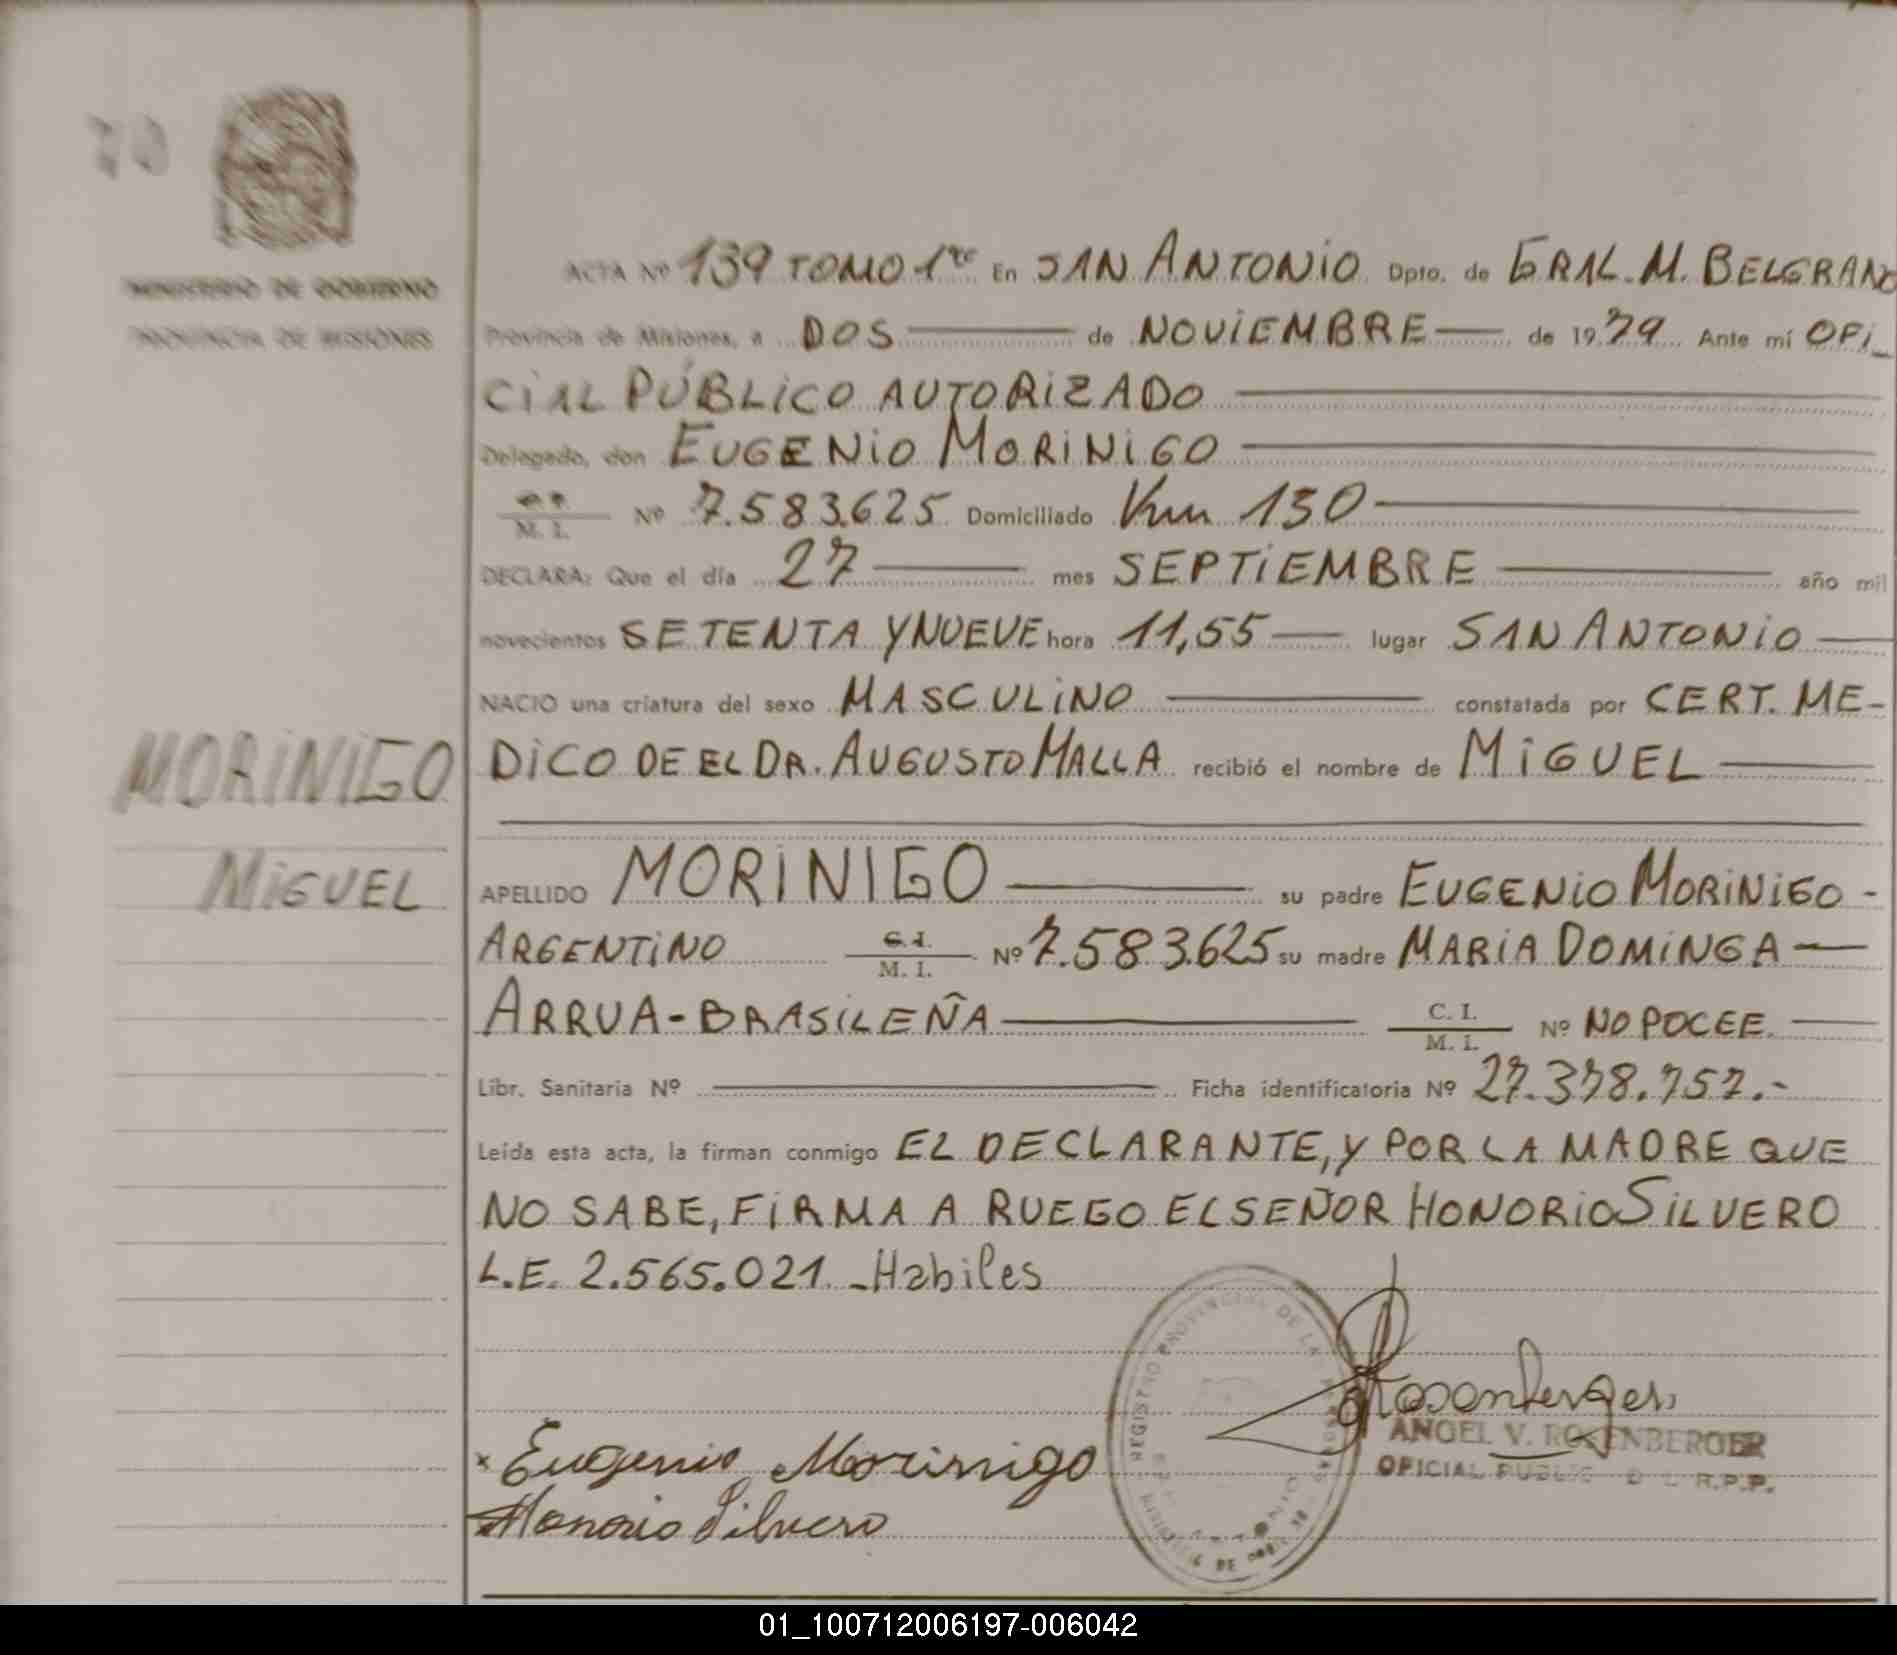 70
MINISTERIO DE GOBIERNO
PROVINCIA DE MISIONES
ACTA Nº 139 TOMO 1ro En SAN ANTONIO Dpto. de GRAL. M. BELGRANO
Provincia de Misiones, a DOS de NOVIEMBRE de 1979 Ante mí OFI_
CIAL PÚBLICO AUTORIZADO
Delegado, don EUGENIO MORINIGO
M. I. Nº 7.583.625 Domiciliado Km 130
DECLARA: Que el día 27 mes SEPTIEMBRE año mil
novecientos SETENTA Y NUEVE hora 11,55 lugar SAN ANTONIO
NACIO una criatura del sexo MASCULINO constatada por CERT. ME-
DICO DE EL DR. AUGUSTO MALLA recibió el nombre de MIGUEL
MORINIGO
MIGUEL
APELLIDO MORINIGO su padre EUGENIO MORINIGO -
ARGENTINO C.I. M. I. Nº 7.583.625 su madre MARIA DOMINGA
ARRUA - BRASILEÑA C. I. M. I. Nº NO POCEE.
Libr. Sanitaria Nº Ficha identificatoria Nº 27.378.757.-
Leída esta acta, la firman conmigo EL DECLARANTE, Y POR LA MADRE QUE
NO SABE, FIRMA A RUEGO EL SEÑOR HONORIO SILVERO
L.E. 2.565.021 - Habiles
REGISTRO PROVINCIAL DE LAS PERSONAS
Rosenberger
ANGEL V. ROSENBERGER
OFICIAL PUBLIC D L R.P.P.
x Eugenio Morinigo
Honorio Silvero
01_100712006197-006042